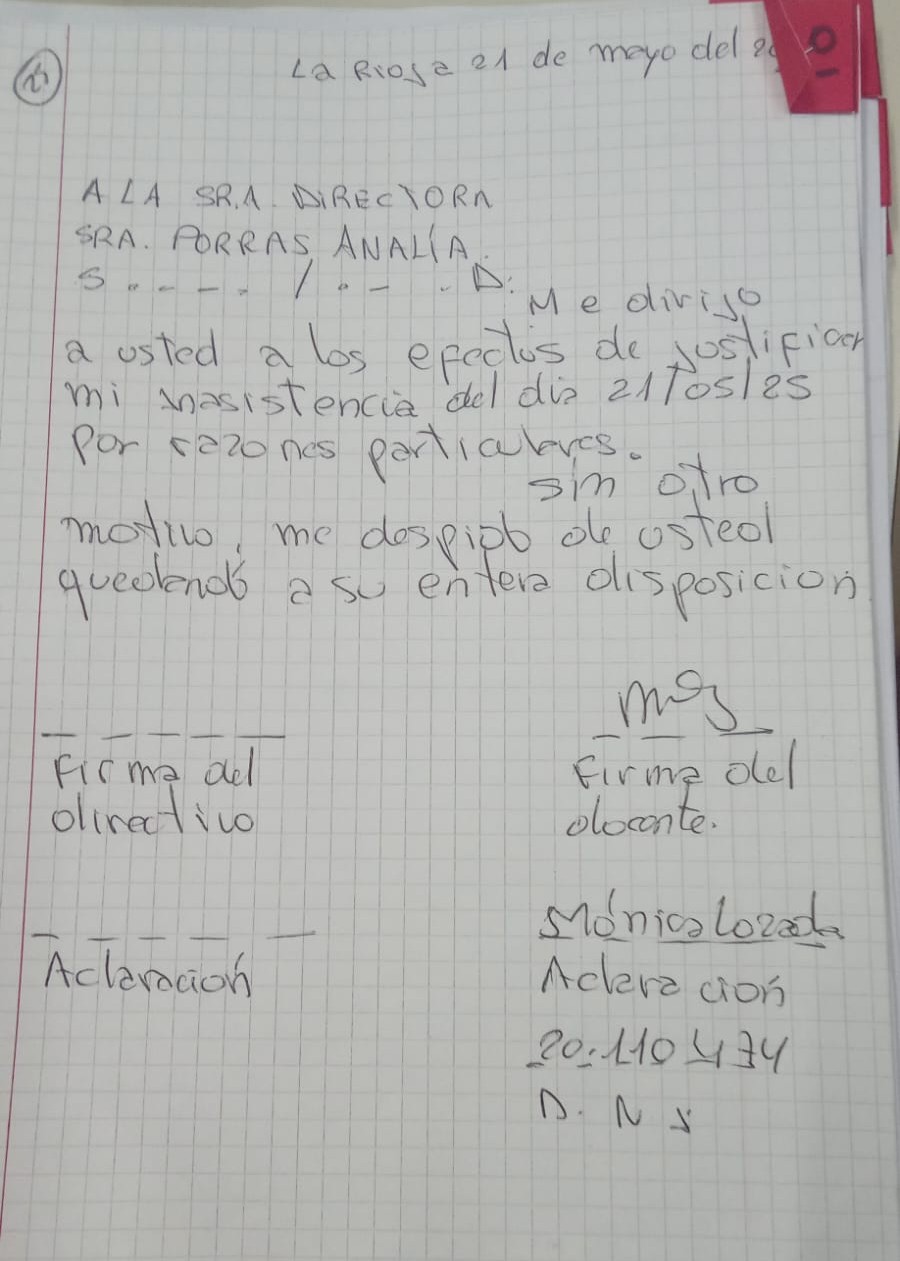 La Rioja 21 de mayo del 20
A LA SRA. DIRECTORA
SRA. PORRAS, ANALÍA.
S . . - - . / . - . D:
Me dirijo
a usted a los efectos de justificar
mi inasistencia del dia 21/05/25
por razones particulares.
sin otro
motivo, me despido de usted
quedando a su entera disposicion
Firma del
directivo
Firma del
docente.
Aclaracion
Mónica Lozada
Aclara cion
20.110474
D. N I